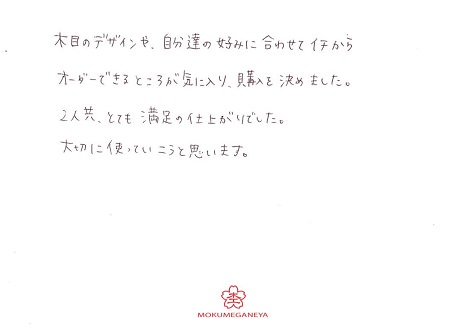 木目のデザインや、自分達の好みに合わせてイチから
オーダーできるところが気に入り、購入を決めました。
2人共、とても満足の仕上がりでした。
大切に使っていこうと思います。
MOKUMEGANEYA